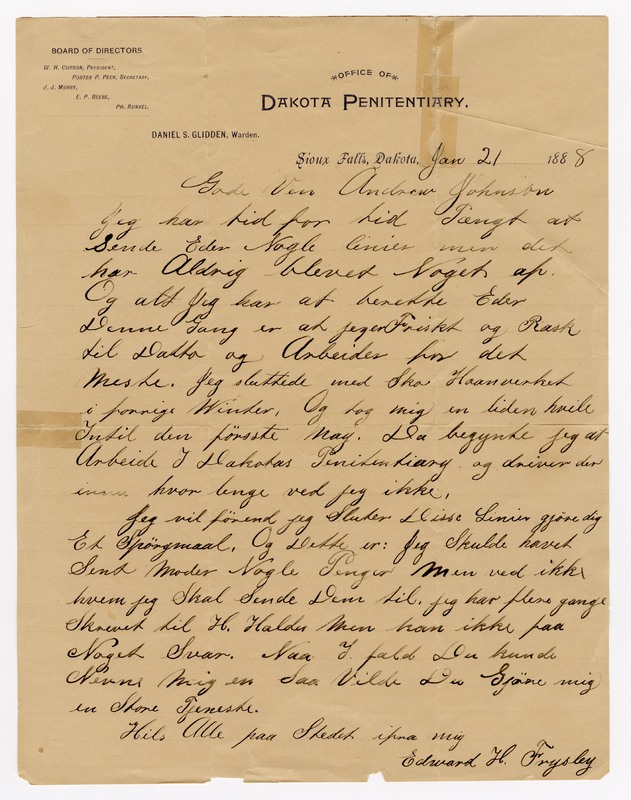 BOARD OF DIRECTORS
W. H. CORSON, PRESIDENT,
PORTER P. PECK, SECRETARY,
J. J. MUNDY,
E. P. BEEBE,
PH. RUNKEL.
OFFICE OF
DAKOTA PENITENTIARY.
DANIEL S. GLIDDEN, Warden.
Sioux Falls, Dakota, Jan 21 1888
Gode Ven Andrew Johnson
Jeg har tid for tid Tængt at
Sende Eder Nogle linier men det
har Aldrig blevet Noget af.
Og alt Jeg har at berette Eder
Denne Gang er at jeg er Friskt og Rask
til Datto og Arbeider for det
meste. Jeg sluttede med Sko Haanverket
i forrige Winter, Og tog mig en liden hvile
Intil den försste May. Da begynte jeg at
Arbeide I Dakotas Penitentiary og driver der
innu hvor lenge ved jeg ikke,
Jeg vil förend jeg Sluter Disse Linier gjöre dig
Et Spörgmaal, Og Dette er: Jeg Skulde havet
Sent Moder Nogle Penger Men ved ikke
hvem jeg Skal Sende Dem til. jeg har flere gange
Skrevet til H. Halder Men kan ikke faa
Noget Svar. Naa I fald Du kunde
Nevne Mig en Saa Vilde Du Gjöre mig
en Store Tjeneste.
Hils Alle paa Stedet ifra mig
Edward H. Frysley